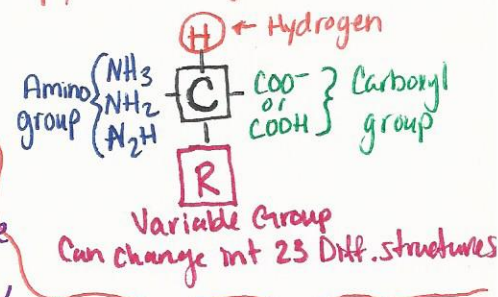 H ← Hydrogen
Amino group { NH3 NH2 N2H - C - COO⁻ or COOH } Carboxyl group
R
Variable Group
Can change int 23 Diff. structures